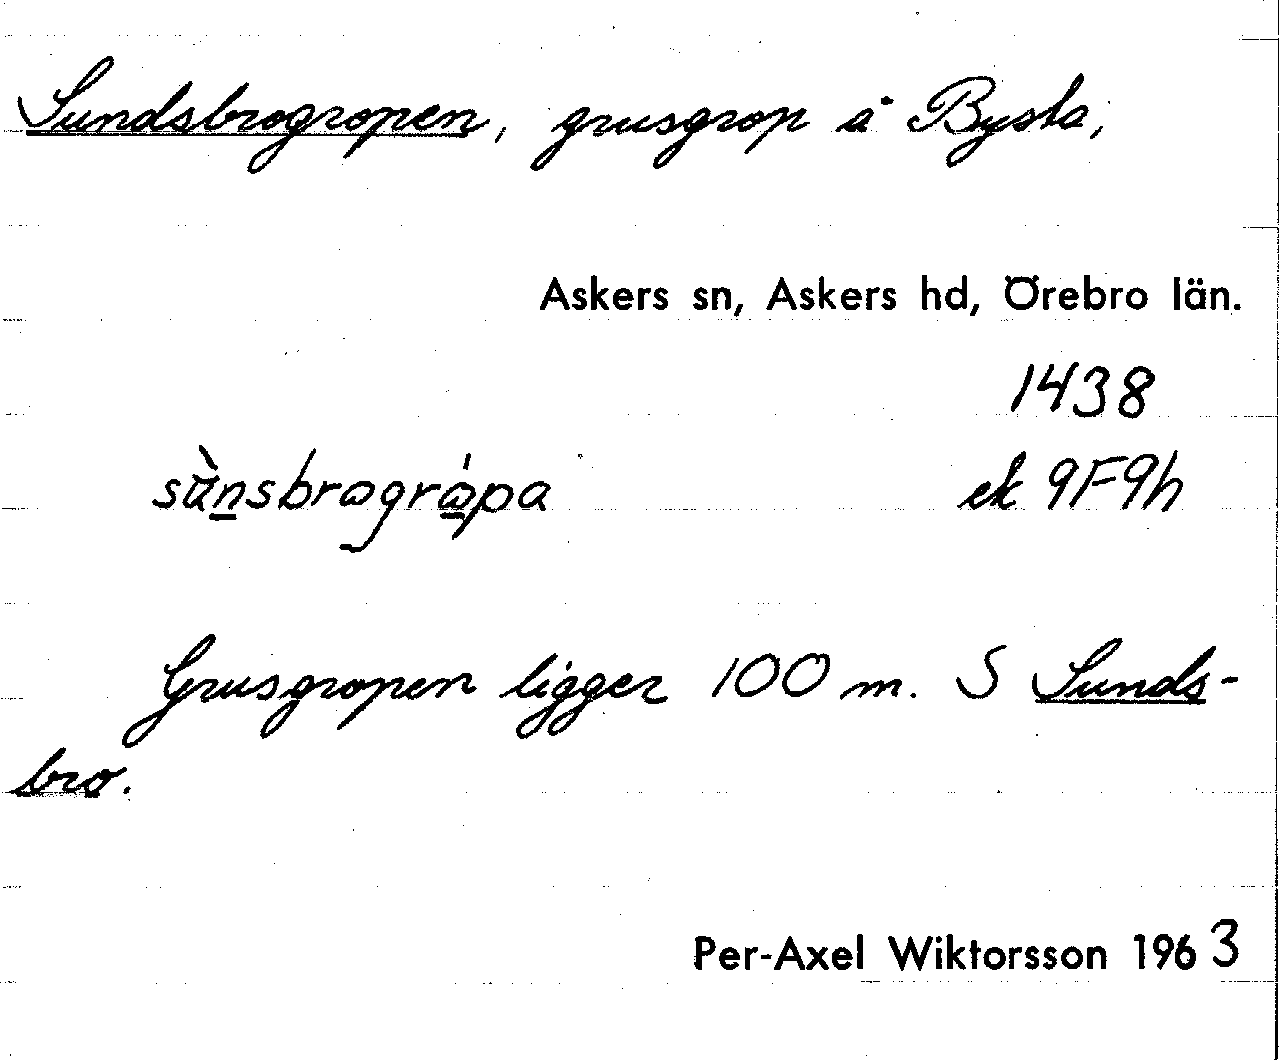 Sundsbrogropen, grusgrop å Bysta,
Askers sn, Askers hd, Örebro län.
1438
sùnsbrogrópa ek 9F9h
Grusgropen ligger 100 m. S Sunds-
bro.
Per-Axel Wiktorsson 1963